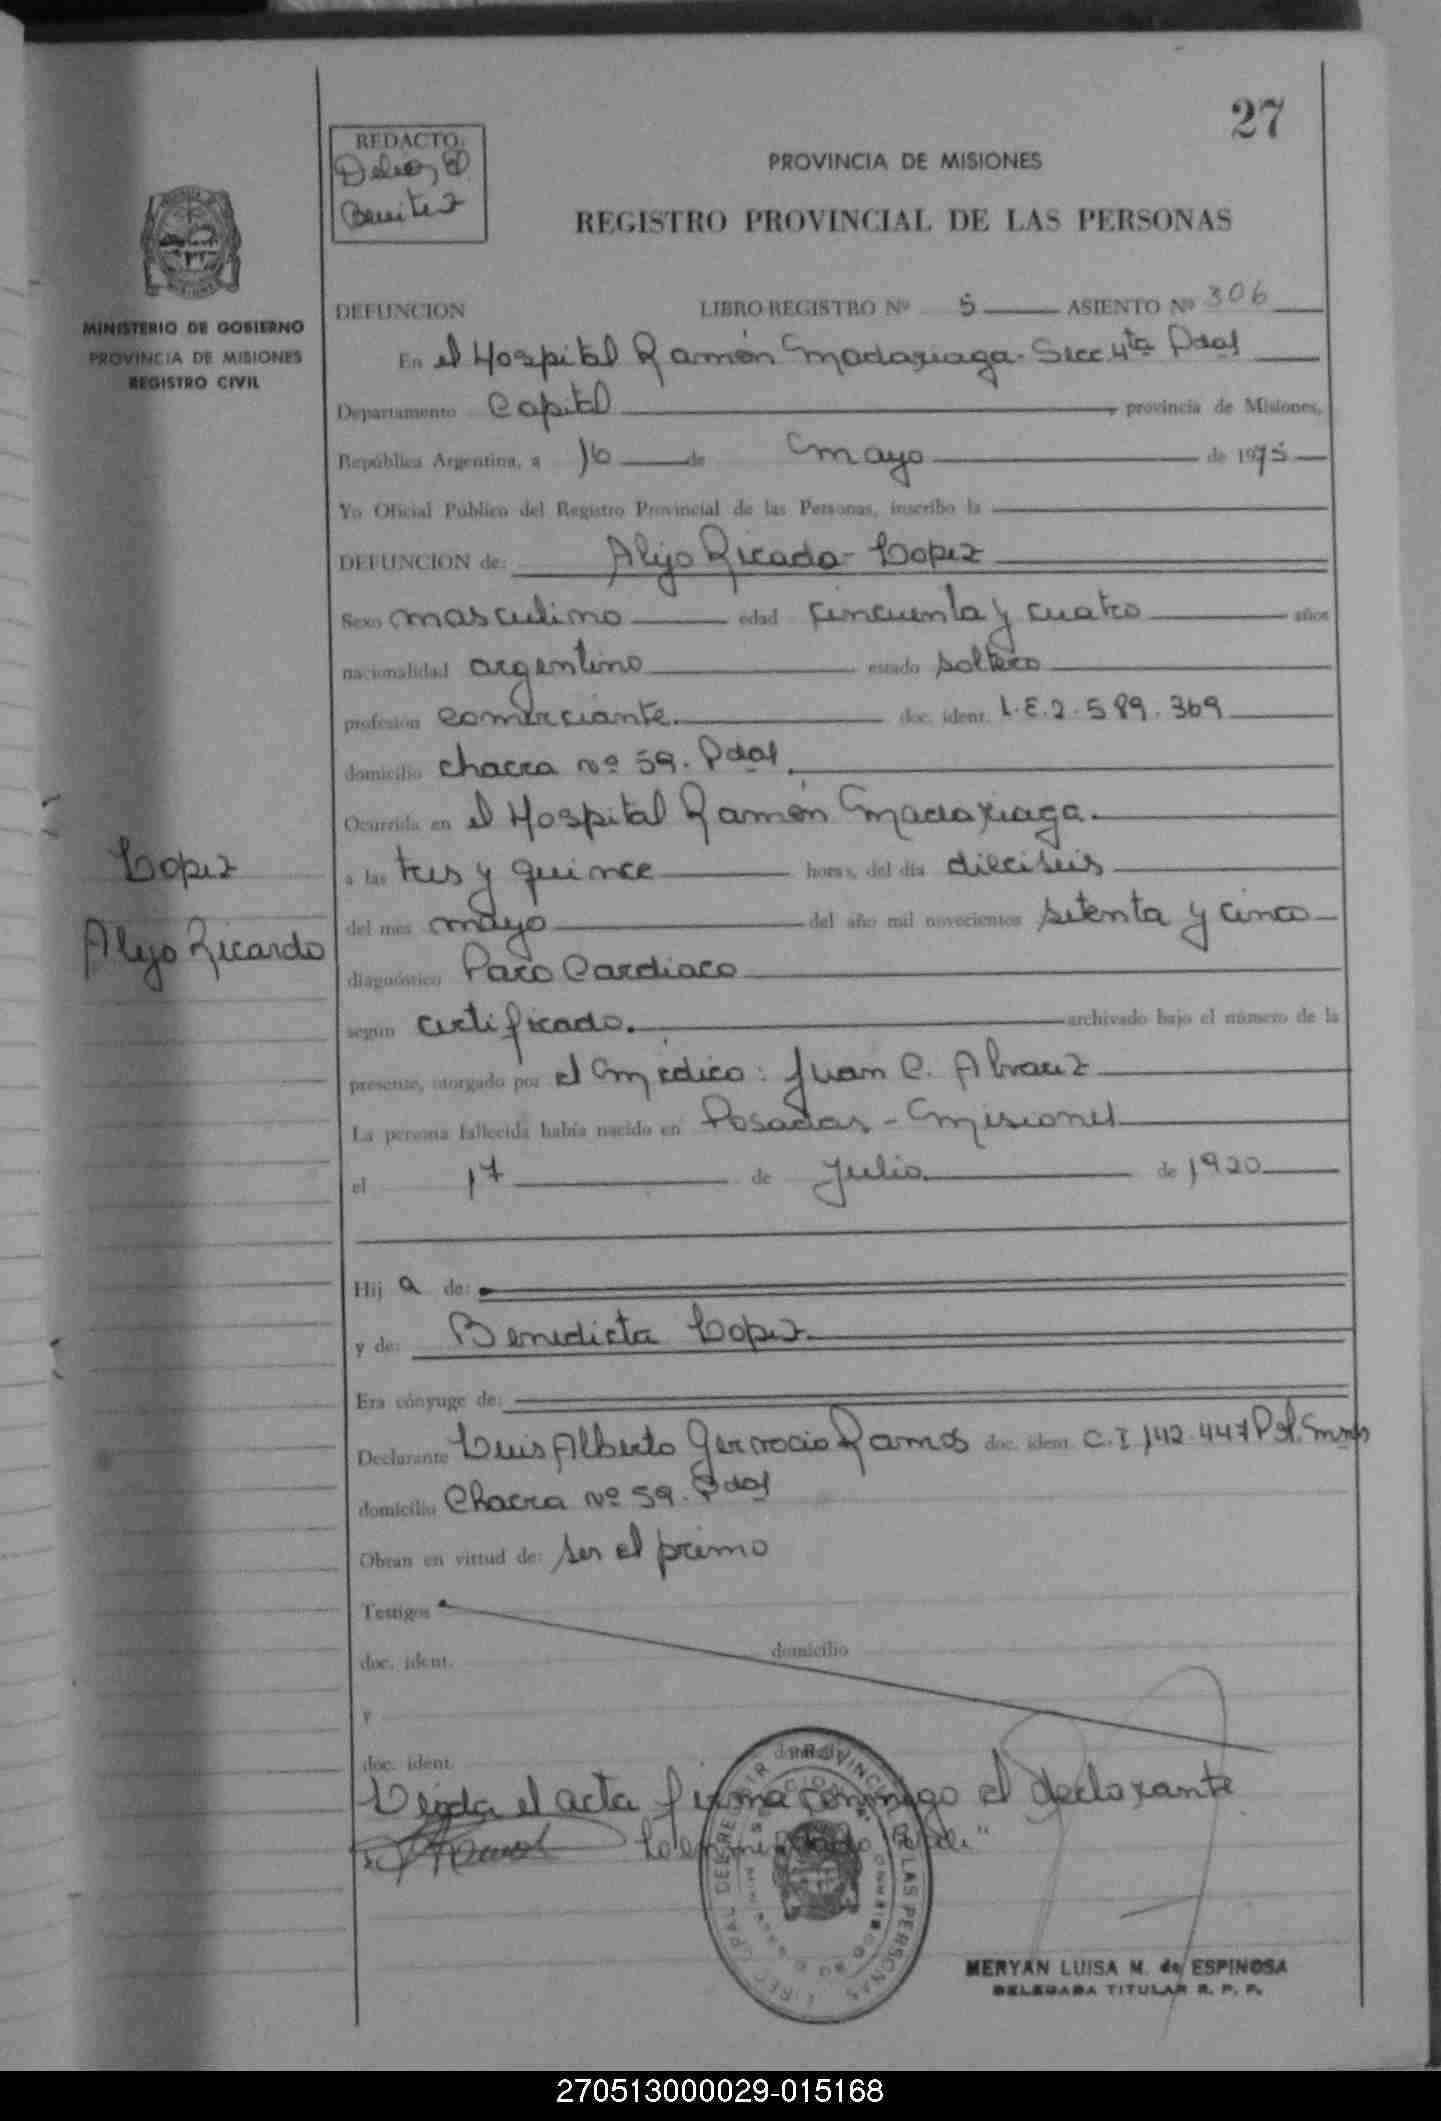 27
REDACTO:
Benitez
PROVINCIA DE MISIONES
REGISTRO PROVINCIAL DE LAS PERSONAS
MINISTERIO DE GOBIERNO
PROVINCIA DE MISIONES
REGISTRO CIVIL
DEFUNCION LIBRO-REGISTRO Nº 5 ASIENTO Nº 306
En el Hospital Ramón Madariaga. Secc. 4ta Pdas
Departamento Capital, provincia de Misiones,
República Argentina, a 16 de mayo de 1975
Yo Oficial Público del Registro Provincial de las Personas, inscribo la
DEFUNCION de: Alejo Ricardo Lopez
Sexo masculino edad cincuenta y cuatro años
nacionalidad argentino estado soltero
profesión comerciante. doc. ident. L.E. 2.589.369
domicilio chacra nº 59. Pdas.
Ocurrida en el Hospital Ramón Madariaga.
a las tres y quince horas, del día dieciseis
Lopez
Alejo Ricardo
del mes mayo del año mil novecientos setenta y cinco
diagnóstico Paro Cardiaco
según certificado. archivado bajo el número de la
presente, otorgado por el médico: Juan C. Alvarez
La persona fallecida había nacido en Posadas - Misiones
el 17 de Julio de 1920
Hij a de:
y de: Benedicta Lopez.
Era cónyuge de:
Declarante Luis Alberto Gervacio Ramos doc. ident. C.I. 142.447 Pol. Mnes
domicilio Chacra Nº 59. Pdas
Obran en virtud de: ser el primo
Testigos
doc. ident. domicilio
y
doc. ident.
Leida el acta firma conmigo el declarante
MERYAN LUISA M. de ESPINOSA
DELEGADA TITULAR R. P. P.
270513000029-015168